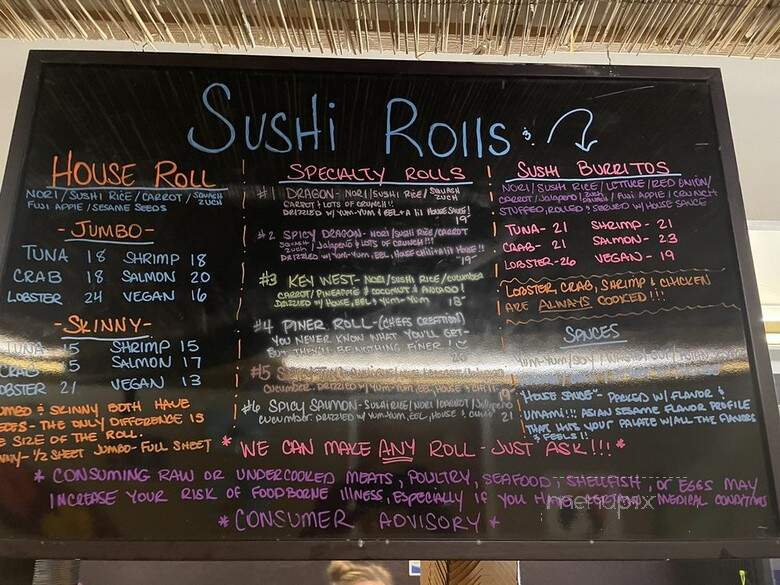 Sushi Rolls:
HOUSE ROLL
NORI/SUSHI RICE/CARROT/SQUASH ZUCH
FUJI APPLE/SESAME SEEDS
- JUMBO -
TUNA 18 SHRIMP 18
CRAB 18 SALMON 20
LOBSTER 24 VEGAN 16
- SKINNY -
TUNA 15 SHRIMP 15
CRAB 15 SALMON 17
LOBSTER 21 VEGAN 13
JUMBO & SKINNY BOTH HAVE
- THE ONLY DIFFERENCE IS
THE SIZE OF THE ROLL.
SKINNY - 1/2 SHEET JUMBO - FULL SHEET
SPECIALTY ROLLS
#1 DRAGON - NORI/SUSHI RICE/SQUASH ZUCH
CARROT & LOTS OF CRUNCH!!
DRIZZLED W/ YUM-YUM & EEL + A lil HOUSE SAUCE!
19
#2 SPICY DRAGON - NORI/SUSHI RICE/CARROT
SQUASH ZUCH/Jalapeño & LOTS OF CRUNCH!!!
DRIZZLED W/YUM-YUM, EEL, HOUSE HOUSE!!
19
#3 KEY WEST - NORI/SUSHI RICE/CUCUMBER
CARROT/PINEAPPLE & COCONUT & AVOCADO!
DRIZZLED W/HOUSE, EEL & YUM-YUM 18
#4 PINER ROLL - (CHEFS CREATION)
YOU NEVER KNOW WHAT YOU'LL GET -
BUT THEY'LL BE NOTHING FINER!
20
#5 SPICY
CUCUMBER DRIZZLED W/YUM-YUM, EEL, HOUSE &
19
#6 SPICY SALMON - SUSHI RICE/NORI/CARROT/Jalapeño
CUCUMBER DRIZZLED W/YUM-YUM, EEL, HOUSE & 21
SUSHI BURRITOS
NORI/SUSHI RICE/LETTUCE/RED ONION/
CARROT/Jalapeño/SQUASH ZUCH/FUJI APPLE/CRUNCH
STUFFED, ROLLED & SERVED W/HOUSE SAUCE
TUNA - 21 SHRIMP - 21
CRAB - 21 SALMON - 23
LOBSTER - 26 VEGAN - 19
LOBSTER, CRAB, SHRIMP & CHICKEN
ARE ALWAYS COOKED!!!
SAUCES
YUM-YUM/SOY/WASABI
"HOUSE SAUCE" - PACKED W/FLAVOR &
UMAMI!!! ASIAN SESAME FLAVOR PROFILE
THAT HITS YOUR PALATE W/ALL THE FLAVORS
& FEELS!!
* WE CAN MAKE ANY ROLL - JUST ASK!!! *
* CONSUMING RAW OR UNDERCOOKED MEATS, POULTRY, SEAFOOD, SHELLFISH, OR EGGS MAY
INCREASE YOUR RISK OF FOODBORNE ILLNESS, ESPECIALLY IF YOU HAVE CERTAIN MEDICAL CONDITIONS
* CONSUMER ADVISORY *
menupix